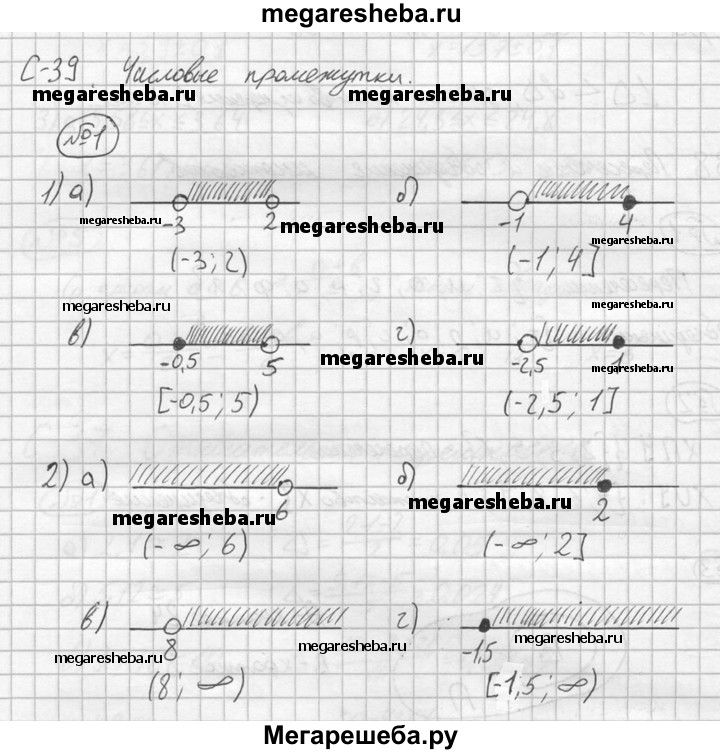 megaresheba.ru
С-39. Числовые промежутки.
megaresheba.ru megaresheba.ru
№1
1) а) б)
-3 2 -1 4
megaresheba.ru megaresheba.ru megaresheba.ru
(-3; 2) (-1; 4]
megaresheba.ru megaresheba.ru
в) г)
-0,5 5 -2,5 1
megaresheba.ru megaresheba.ru
[-0,5; 5) (-2,5; 1]
2) а) б)
6 2
megaresheba.ru megaresheba.ru
(-∞; 6) (-∞; 2]
в) г)
8 -1,5
megaresheba.ru megaresheba.ru megaresheba.ru
(8; ∞) [-1,5; ∞)
Мегарешеба.ру